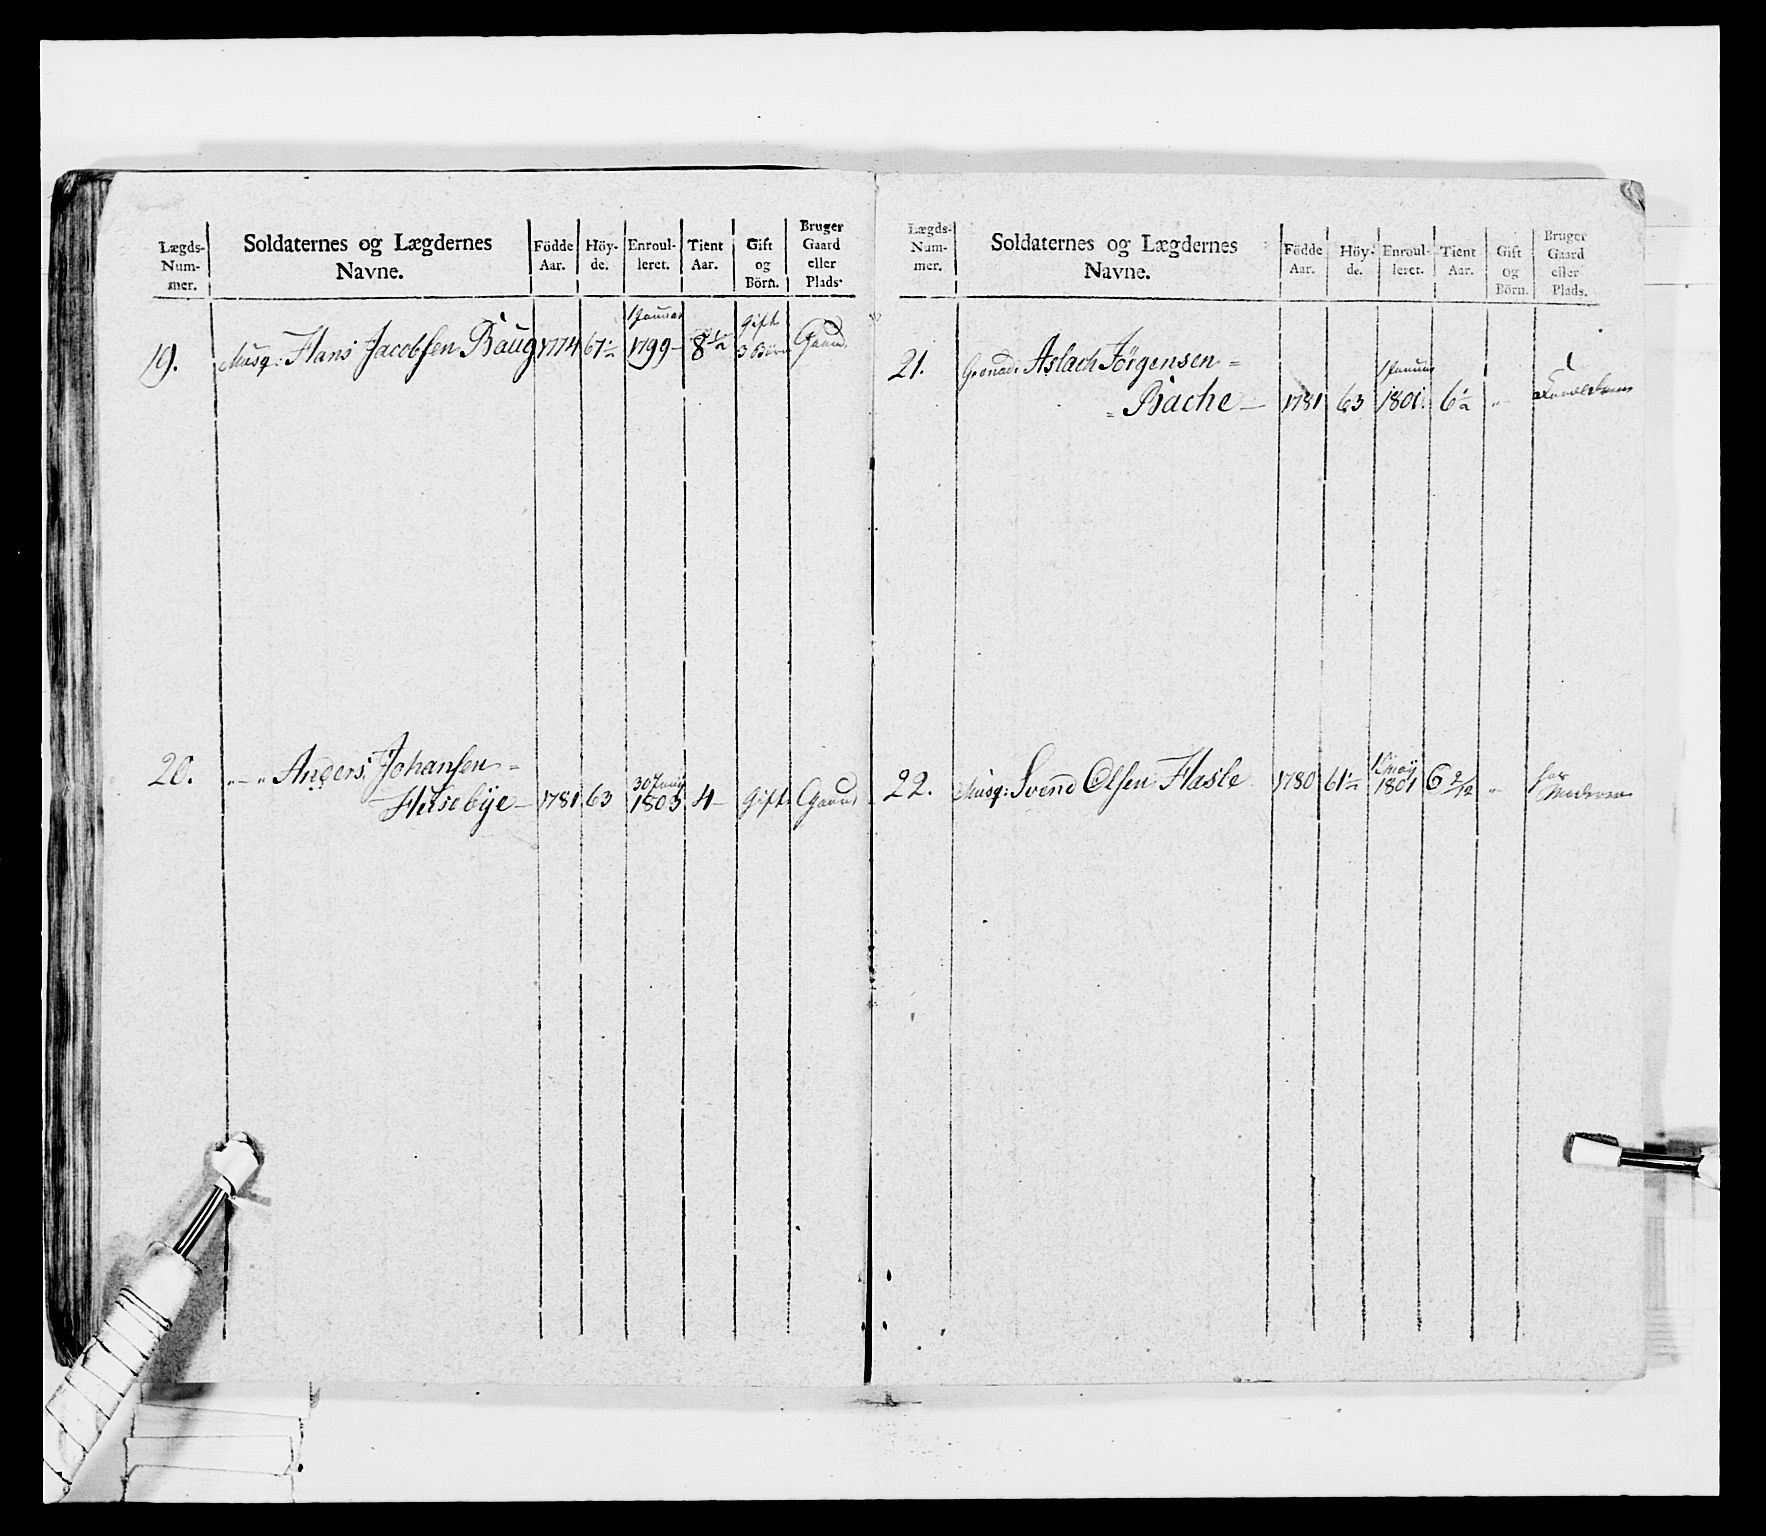 Lægds-Num-mer. Soldaternes og Lægdernes Navne. Födde Aar. Höy-de. Enroul-leret. Tient Aar. Gift og Börn. Bruger Gaard eller Plads.
19. Musq: Hans Jacobsen Baug 1774 67½ 1 Januar 1799 8½ Gift 3 Börn Gaard.
20. " — " Anders Johansen =
Husebÿe — 1781 63 30 Junÿ 1803 4 — Gift Gaard
Lægds-Num-mer. Soldaternes og Lægdernes Navne. Födde Aar. Höy-de. Enroul-leret. Tient Aar. Gift og Börn. Bruger Gaard eller Plads.
21. Grenad: Aslach Jörgensen =
= Bache — 1781 63 1 Januar 1801. 6½ "
22. Musq: Svend Olsen Hasle 1780 61½ Maÿ 1801 6 2/12 " hos Moderen